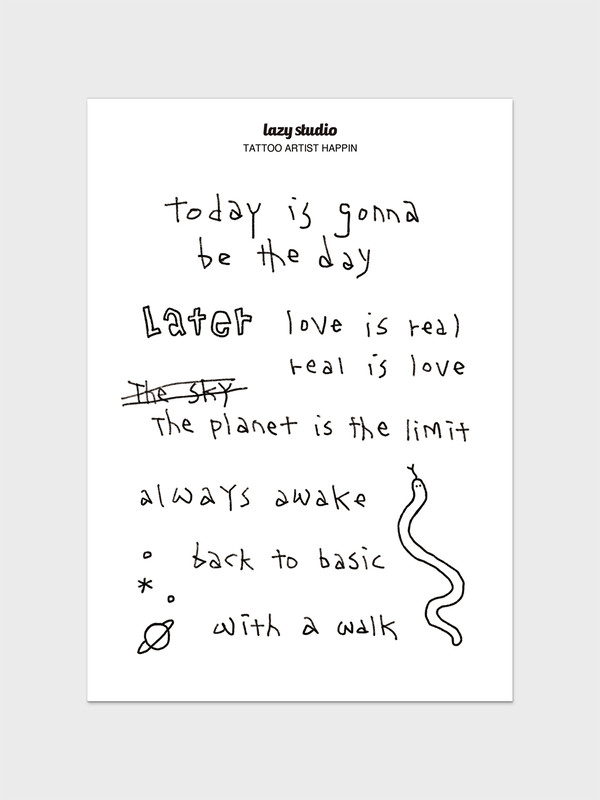 lazy studio
TATTOO ARTIST HAPPIN
today is gonna
be the day
Later
love is real
real is love
The sky
The planet is the limit
always awake
back to basic
with a walk